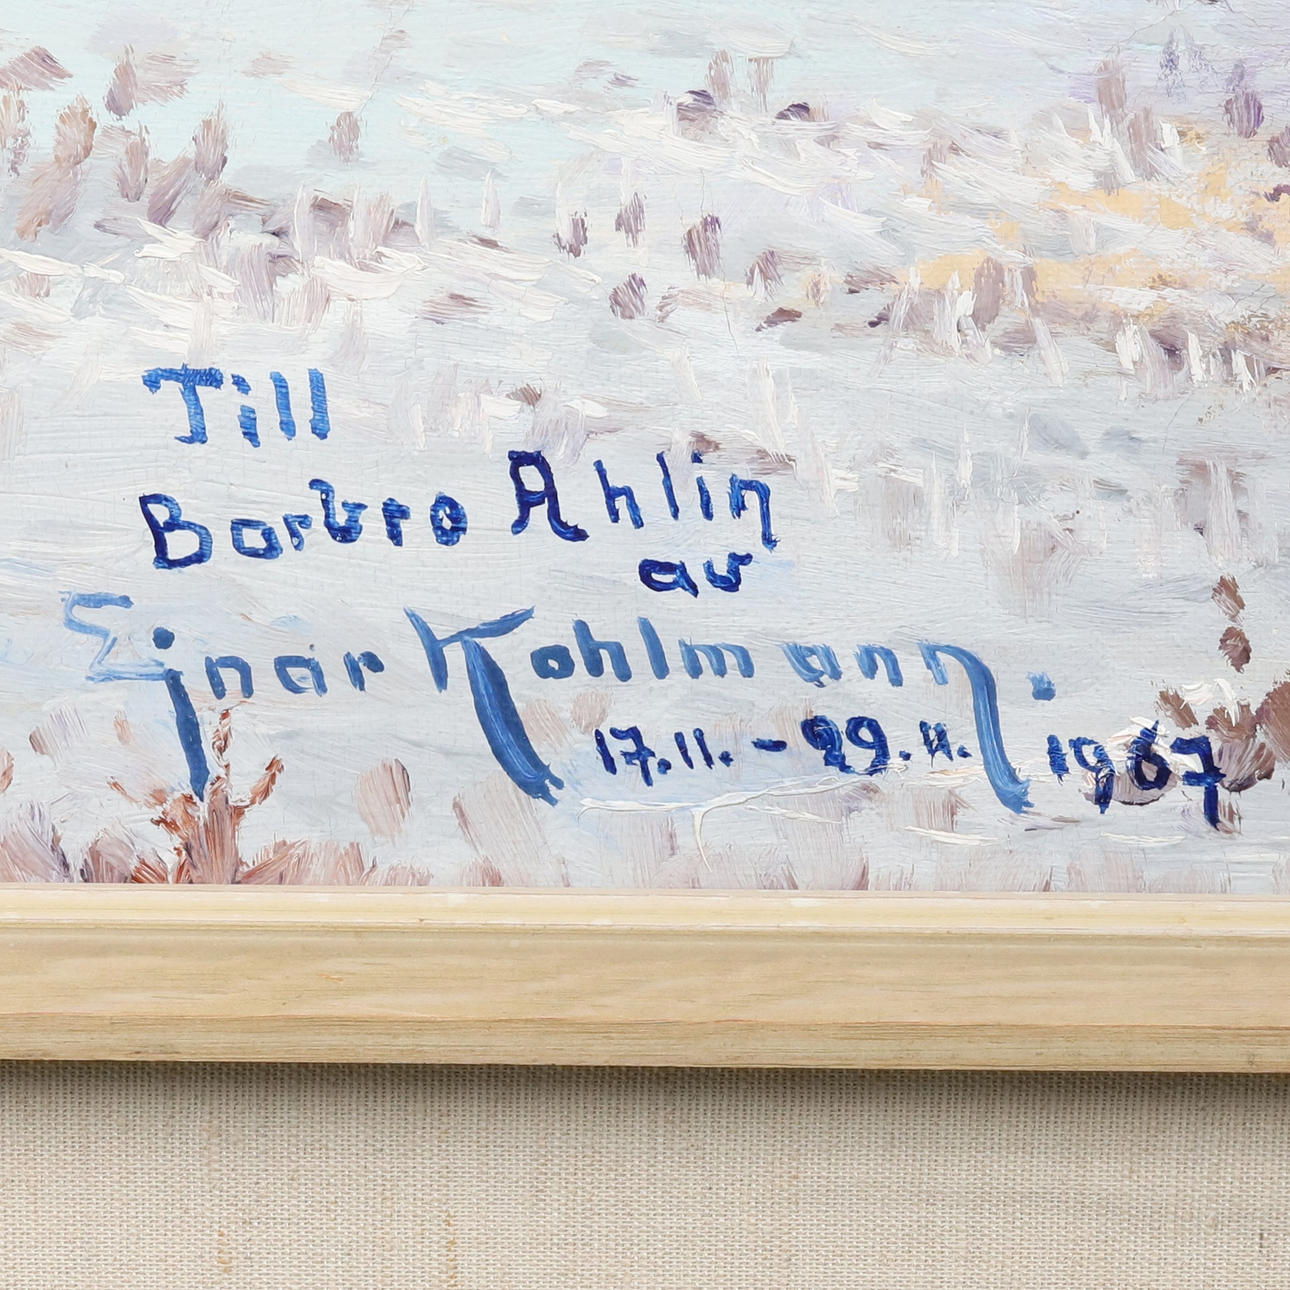 Till
Barbro Ahlin
av
Einar Kohlmann.
17.11.-29.11. 1967